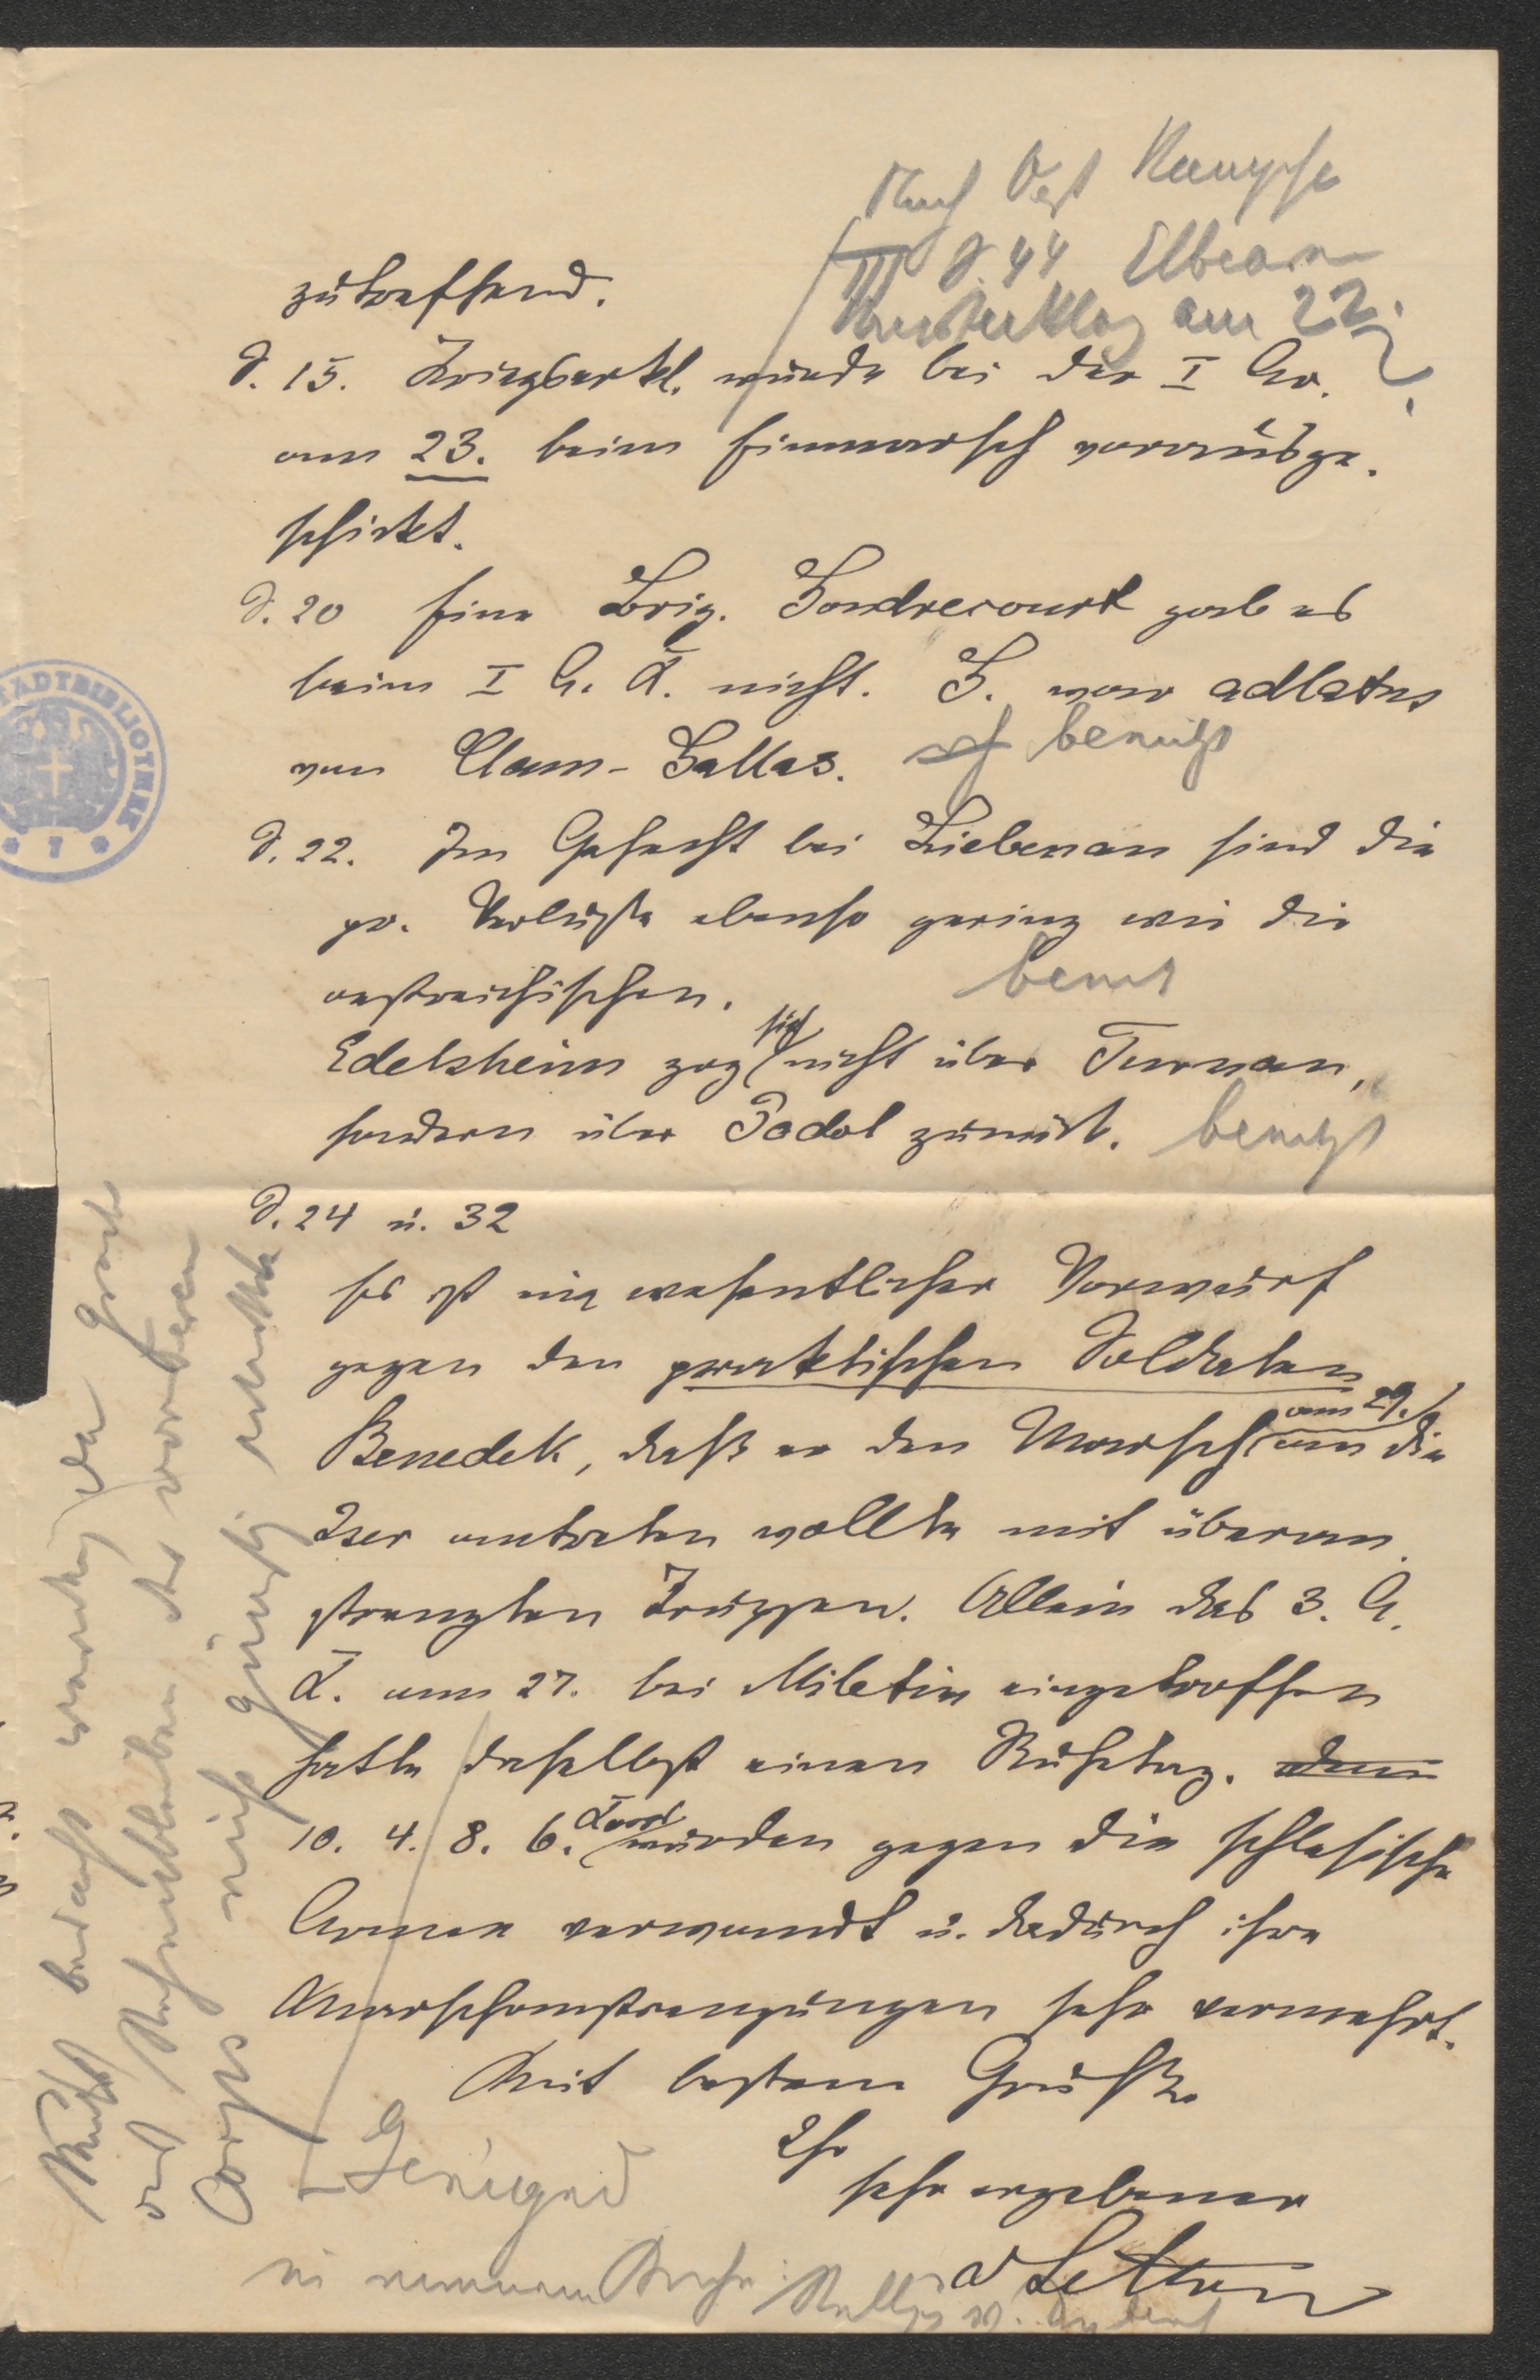 Nach Oest Kampfe
III S. 44 Elbeam
am 22.
zutreffend.
S. 15. Kriegserkl. wurde bei der I Ar.
am 23. beim Einmarsch vorausge-
schickt.
S. 20 Eine Brig. Gondrecourt gab es
beim I A. K. nicht. G. war adlatus
von Clam-Gallas. benützt
S. 22. Im Gefecht bei Liebenau sind die
pr. Verluste ebenso gering wie die
oestreichischen. benut
Edelsheim zog sich nicht über Turnau,
sondern über Podol zurück. benützt
S. 24 u. 32
Es ist ein wesentlicher Vorwurf
gegen den praktischen Soldaten
Benedek, daß er den Marsch am 29. an die
Iser antreten wollte mit überan-
strengten Truppen. Allein das 3. A.
K. am 27. bei Miletin eingetroffen
hatte daselbst einen Ruhetag.
10. 4. 8. 6. Korps wurden gegen die schlesische
Armee verwandt u. dadurch ihre
Marschanstrengungen sehr vermehrt.
Mit bestem Gruße
Ihr
sehr ergebener
v Lettow
Genügend
in meinem Buche
Nicht bedacht
das Stehenbleiben der vorderen
Corps nicht günstig
STADTBIBLIOTHEK